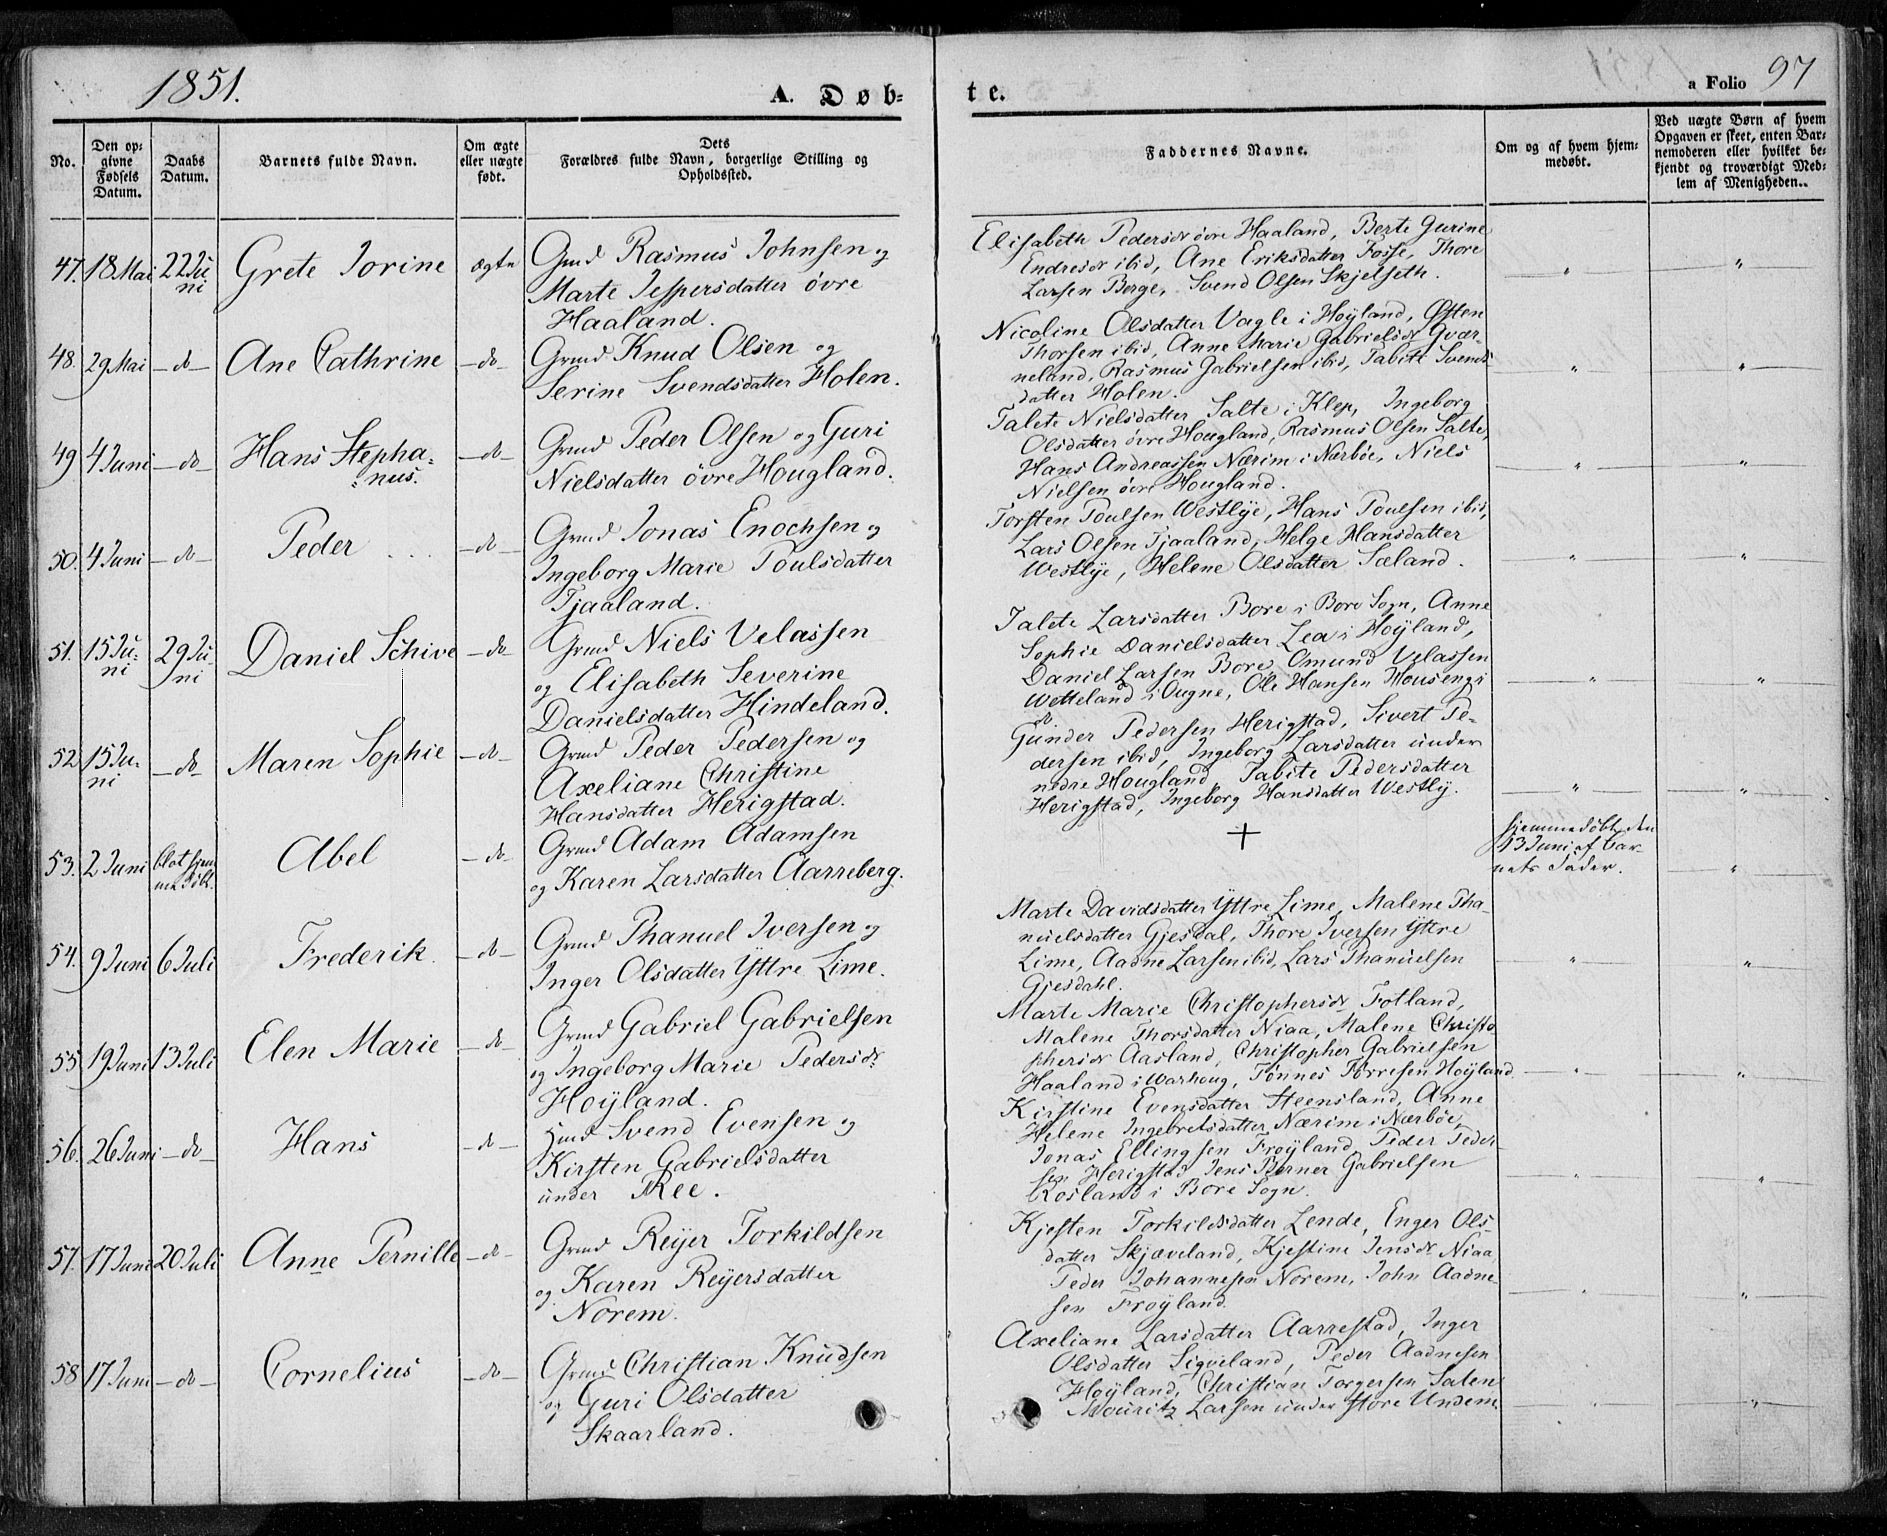 1851.
A. Døb-
te.
a Folio 97
No.
Den op-
givne
Fødsels
Datum.
Daabs
Datum.
Barnets fulde Navn.
Om ægte
eller uægte
født.
Dets
Forældres fulde Navn, borgerlige Stilling og
Opholdssted.
Faddernes Navne.
Om og af hvem hjem-
medøbt.
Ved uægte Børn af hvem
Opgaven er skeet, enten Bar-
nemoderen eller hvilket be-
kjendt og troværdigt Med-
lem af Menigheden.
47. 18 Mai 22 Ju
ni
Grete Jorine
ægte
Gmd Rasmus Johnsen og
Marte Jespersdatter øvre
Haaland.
Elisabeth Pedersdr øvre Haaland, Berte Gurine
Endresdr ibid, Ane Eriksdatter Fosse, Thore
Larsen Berge, Svend Olsen Skjelseth.
48. 29 Mai - do -
Ane Cathrine
- do -
Grmd Knud Olsen og
Serine Svendsdatter Holen.
Nicoline Olsdatter Vagle i Høyland, Østen
Thorsen ibid, Anne Marie Gabrielsdr Qvær-
neland, Rasmus Gabrielsen ibid, Tabite Svends
datter Holen.
49 4 Juni - do -
Hans Stepha=
=nus.
- do -
Grmd Peder Olsen og Guri
Nielsdatter øvre Hougland.
Talete Nielsdatter Salte i Klep, Ingeborg
Olsdatter øvre Hougland, Rasmus Olsen Salte,
Hans Andreassen Nærim i Nærbøe, Niels
Nielsen øvre Hougland.
50. 4 Juni - do -
Peder
- do -
Grmd Jonas Enochsen og
Ingeborg Marie Poulsdatter
Tjaaland.
Torsten Poulsen Westlye, Hans Poulsen ibid,
Lars Olsen Tjaaland, Helge Hansdatter
Westlye, Helene Olsdatter Sæland.
51. 15 Ju-
ni
29 Ju
ni
Daniel Schive
- do -
Grmd Niels Velassen
og Elisabeth Severine
Danielsdatter Hindeland.
Talete Larsdatter Bore i Bore Sogn, Anne
Sophie Danielsdatter Lea i Høyland,
Daniel Larsen Bore, Omund Velassen
Wetteland i Ougne, Ole Hansen Houseng i
do
52 15 Ju-
ni
- do -
Maren Sophie
- do -
Grmd Peder Pedersen og
Axeliane Christine
Hansdatter Herigstad.
Gunder Pedersen Herigstad, Sivert Pe-
dersen ibid, Ingeborg Larsdatter under
nedre Hougland, Tabite Pedersdatter
Herigstad, Ingeborg Hansdatter Westly.
53. 2 Juni blot hjem
medøbt.
Abel
- do -
Grmd Adam Adamsen
og Karen Larsdatter Aarreberg.
+
hjemmedøbt den
13 Juni af Bar-
nets Fader.
54. 9 Juni 6 Juli
Frederik
- do -
Grmd Phanuel Iversen og
Inger Olsdatter Yttre Lime.
Marte Davidsdatter Yttre Lime, Malene Pha-
nuelsdatter Gjesdal, Thore Iversen Yttre
Lime, Aadne Larsen ibid, Lars Phanuelsen
Gjesdahl.
55 19 Juni 13 Juli
Elen Marie
- do -
Grmd Gabriel Gabrielsen
og Ingeborg Marie Pedersdr
Høyland.
Marte Marie Christophersdr Fotland,
Malene Thorsdatter Niaa, Malene Christo
phersdr Aasland, Christopher Gabrielsen
Haaland i Warhoug, Tønnes Torresen Høyland
56. 26 Juni - do -
Hans
- do -
Hmd Svend Evensen og
Kirsten Gabrielsdatter
under Ree.
Kirstine Evensdatter Steensland, Anne
Helene Ingebretsdatter Nærim i Nærbøe,
Jonas Ellingsen Frøyland, Peder Peder
sen Herigstad, Jens Berner Gabrielsen
Rosland i Bore Sogn.
57. 17 Juni 20 Juli
Anne Pernille
- do -
Grmd Reijer Torkildsen
og Karen Reijersdatter
Norem.
Kjesten Torkildsdatter Lende, Enger Ols-
datter Skjæveland, Kjestine Jensdr Niaa,
Peder Johannesen Norem, John Aadne-
sen Frøyland.
58 17 Juni - do -
Cornelius
- do -
Grmd Christian Knudsen
og Guri Olsdatter
Skaarland.
Axeliane Larsdatter Aarrestad, Inger
Olsdatter Sigveland, Peder Aadnesen
Høyland, Christian Torgersen Salen
Mouritz Larsen under store Undem.